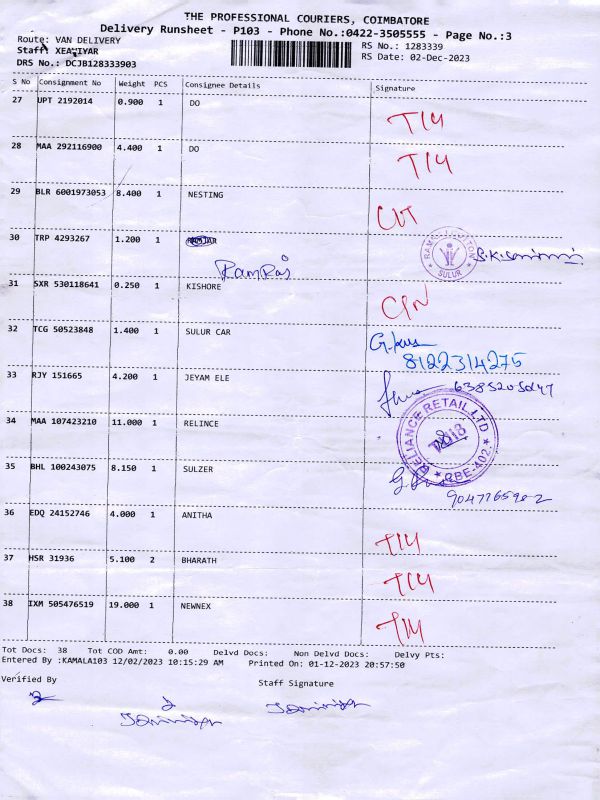 THE PROFESSIONAL COURIERS, COIMBATORE
Delivery Runsheet - P103 - Phone No.:0422-3505555 - Page No.:3
Route: VAN DELIVERY
RS No.: 1283339
Staff XEAVIYAR
RS Date: 02-Dec-2023
DRS No.: DCJB128333903
S No Consignment No Weight PCS Consignee Details Signature
27 UPT 2192014 0.900 1 DO
28 MAA 292116900 4.400 1 DO
29 BLR 6001973053 8.400 1 NESTING
30 TRP 4293267 1.200 1
SULUR
RamRaj
31 SXR 530118641 0.250 1 KISHORE
32 TCG 50523848 1.400 1 SULUR CAR
8122314275
33 RJY 151665 4.200 1 JEYAM ELE
34 MAA 107423210 11.000 1 RELINCE
RELIANCE RETAIL LTD
35 BHL 100243075 8.150 1 SULZER
36 EDQ 24152746 4.000 1 ANITHA
37 HSR 31936 5.100 2 BHARATH
38 IXM 505476519 19.000 1 NEWNEX
Tot Docs: 38 Tot COD Amt: 0.00 Delvd Docs: Non Delvd Docs: Delvy Pts:
Entered By :KAMALA103 12/02/2023 10:15:29 AM Printed On: 01-12-2023 20:57:50
Verified By
Staff Signature